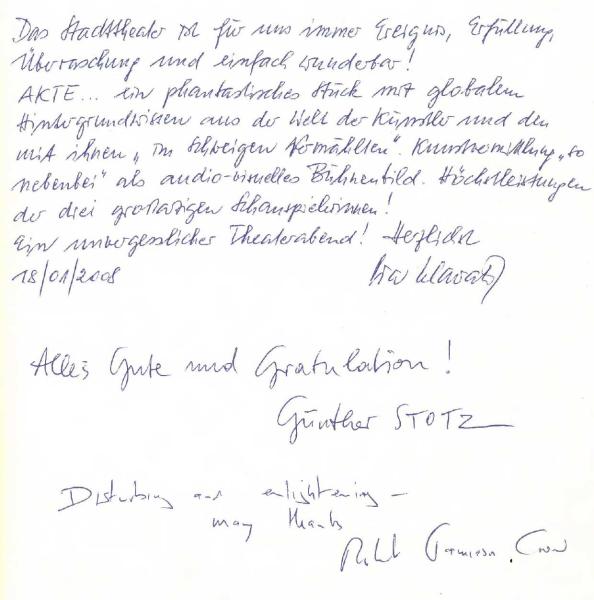 Das Stadttheater ist für uns immer Ereignis, Erfüllung,
Überraschung und einfach wunderbar!
AKTE... ein phantastisches Stück mit globalem
Hintergrundwissen aus der Welt der Künstler und den
mit ihnen „im Schweigen Vermählten". Kunstvermittlung „so
nebenbei" als audio-visuelles Bühnenbild. Höchstleistungen
der drei großartigen Schauspielerinnen!
Ein unvergesslicher Theaterabend! Herzlichst
18/01/2008
Alles Gute und Gratulation!
Günther STOTZ
Disturbing and enlightening –
many thanks